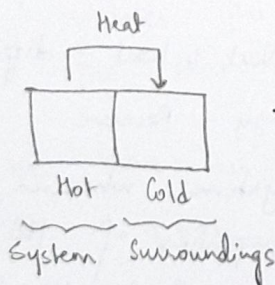 Heat
Hot Cold
System Surroundings